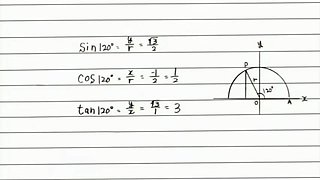 sin120° = y/r = √3/2
cos120° = x/r = -1/2 = 1/2
tan120° = y/x = √3/1 = 3
y
P
r
120°
O
A
x